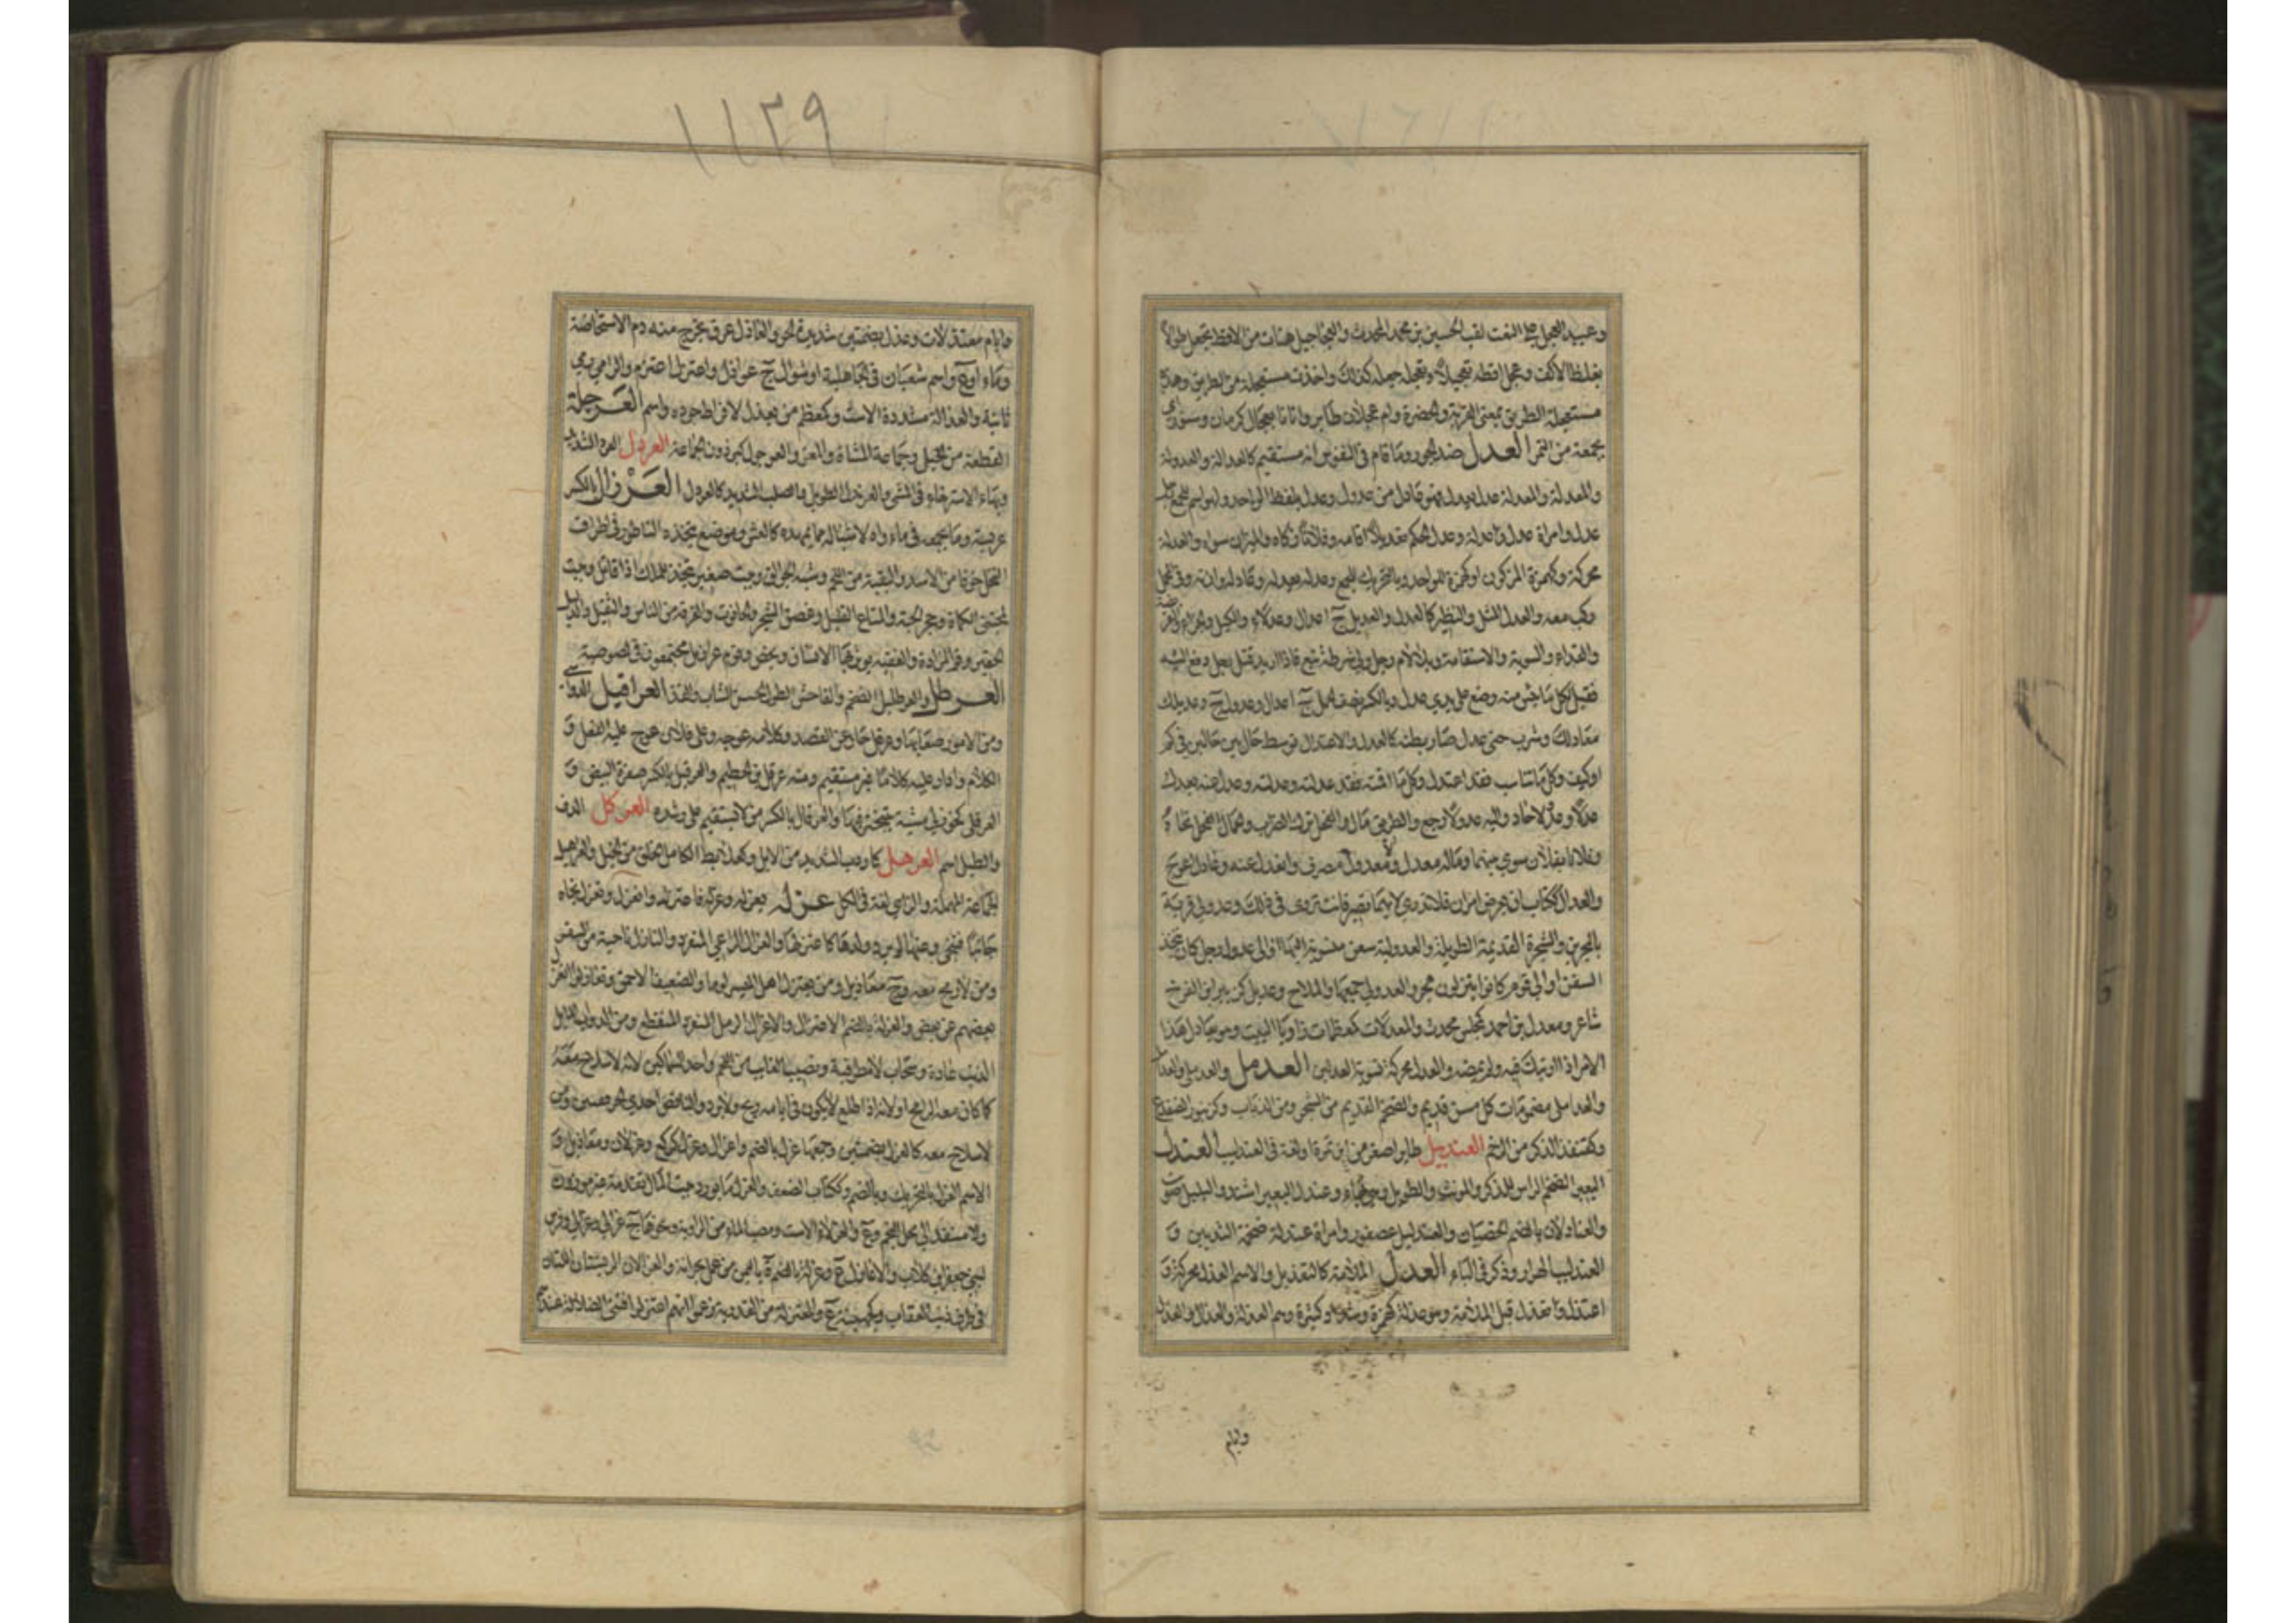 وعبيد العجل على النعت لقب الحسين بن محمد المحدث والعجاجيل هنات من الاقط يجعل طوالا
بغلظ الاكف وعجل اقطه تعجيلا وتعجله جعله كذلك واخذت مستعجلة من الطريق وهذه
مستعجلة الطريق بمعنى القربة والخضرة وام عجلان طائر واتانا بعجال كرمان وسنور اي
بجمعة من التمر العدل ضد الجور وما قام في النفوس انه مستقيم كالعدالة والعدولة
والمعدلة والمعدلة عدل يعدل فهو عادل من عدول وعدل بلفظ الواحد وهو اسم للجمع رجل
عدل وامراة عدل وعدلة وعدل الحكم تعديلا اقامه وفلانا زكاه والميزان سواه والعدلة
محركة وكهمزة المزكون او كهمزة للواحد وبالتحريك للجمع وعدله يعدله وعادله وازنه وفي المحمل
ركب معه والعدل المثل والنظير كالعدل والعديل ج اعدال وعدلاء والكيل والجزاء والفريضة
والفداء والسوية والاستقامة وبلا لام رجل ولي شرطة تبع فاذا اريد قتل رجل دفع اليه
فقيل لكل ما يئس منه وضع على يدي عدل وبالكسر نصف الحمل ج اعدال وعدول ج وعديلك
معادلك وشرب حتى عدل صار بطنه كالعدل والاعتدال توسط حال بين حالين في كم
او كيف وكل ما تناسب فقد اعتدل وكل ما اقمته فقد عدلته وعدلته وعدل عنه يعدل
عدلا وعدولا حاد واليه عدولا رجع والطريق مال والفحل ترك الضراب والجمال الفحل نحاه
وفلانا بفلان سوى بينهما وماله معدل ومعدول مصرف وانعدل عنه وعادل اعوج
والعدال ككتاب ان يعرض امران فلا تدري لايهما تصير فانت تروى في ذلك وعدولى قرية
بالبحرين والشجرة القديمة الطويلة والعدولية سفن منسوبة اليها او الى عدول رجل كان يتخذ
السفن او الى قوم كانوا ينزلون هجر والعدولي جمعها والملاح وعديل كزبير ابن الفرخ
شاعر ومعدل بن احمد كمجلس محدث والمعدلات كمعظمات زوايا البيت وهو يعادل هذا
الامر اذا ارتبك فيه ولم يمضه والعدل محركة تسوية العدلين العدمل والعدملي والعدامل
والعداملي مضمومات كل مسن قديم والضخم القديم من الشجر ومن الضباب وكزنبور الضفدع
وكقنفذ الذكر من الرخم العنديل طائر اصغر من ابن تمرة او لغة في العندليب العندل
البعير الضخم الراس للمذكر والمونث والطويل وهي بهاء وعندل البعير اشتد والبلبل صوت
والعنادلان بالضم الخصيان والعندليل عصفور وامراة عندلة ضخمة الثديين و
العندليب الهزار وذكر في الباء العذل الملامة كالتعذيل والاسم العذل محركة و
اعتذل وتعذل قبل الملامة وهو عذلة كهمزة وشداد وكثيرة وهم العذلة والعذال والعذل
وايام
١١٢٩
وايام معتذلات وعذل بضمتين شديدة الحر والعاذل عرق يخرج منه دم الاستحاضة
وماء او ع واسم شعبان في الجاهلية او شوال ج عواذل واعتذل اعتزم والرامي رمى
ثانية والعذالة مشددة الاست وكمعظم من يعذل لافراط جوده واسم العرجلة
القطعة من الخيل وجماعة المشاة والمعز والعرجول كبرذون الجماعة العردل العرد الشديد
وبهاء الاسترخاء في المشي والعرندل الطويل والصلب الشديد كالعردل العرزال بالكسر
عريسة وما يجمعه في ماواه لاشباله مما يمهده كالعش وموضع يتخذه الناطور في اطراف
النخل خوفا من الاسد والبقية من اللحم وشبه الجوالق وبيت صغير يتخذ للملك اذا قاتل وبيت
لمجتني الكماة وجحر الحية والمتاع القليل وغصن الشجر والحانوت والفرقة من الناس والثقيل والذليل
الحقير وفم المزادة والعفينة يوثق بها الانسان ويخص وقوم عرازيل مجتمعون في لصوصية
العرطل والعرطليل الضخم والفاحش الطول الحسن الشباب والقد العراقيل الدواهي
ومن الامور صعابها وعرقل جار عن القصد وكلامه عوجه وعلى فلان عوج عليه الفعل و
الكلام وادار عليه كلاما غير مستقيم ومنه عرقل بن الحطيم والعرقيل بالكسر صفرة البيض و
العرقلى كخوزلى مشية بتبختر فيها والعرقال بالكسر من لا يستقيم على رشده العركل الدف
والطبل اسم العرهل كاردب الشديد من الابل وكهذب وقمطر الكامل الخلق من الخيل والعراهيل
الجماعة المهملة والزاي لغة في الكل عزله يعزله وعزله فاعتزل وانعزل وتعزل نحاه
جانبا فتنحى وعنها لم يرد ولدها كاعتزلها والمعزال الراعي المنفرد والنازل ناحية من السفر
ومن لا رمح معه وج معازيل ومن يعتزل اهل الميسر لوما والضعيف الاحمق وتعازلوا انعزل
بعضهم عن بعض والعزلة بالضم الاعتزال والاعزل الرمل المنفرد المنقطع ومن الدواب المايل
الذنب عادة وسحاب لا مطر فيه ونصيب الغايب من اللحم واحد السماكين لانه لا سلاح معه
كما كان مع الرامح او لانه اذا طلع لا يكون في ايامه ريح ولا برد والناقص احدى الحرقفتين ومن
لا سلاح معه كالعزل بضمتين وجمعها عزل بالضم واعزال وعزل كركع وعزلان ومعازيل و
الاسم العزل بالتحريك وبالضم وككتاب الضعف والعزل ما يورد بيت المال تقدمة غير موزون
ولا منتقد الى محل النجم وع والعزلاء الاست ومصب الماء من الراوية ونحوها ج عزالي وعزالى وفرس
لبني جعفر بن كلاب والاعازل ع وعزلة بالضم ة باليمن من عمل بحرانة والعزلان الريشتان اللتان
في طرف ذنب العقاب وكجهينة ع والمعتزلة من القدرية زعموا انهم اعتزلوا فئتي الضلالة عندهم